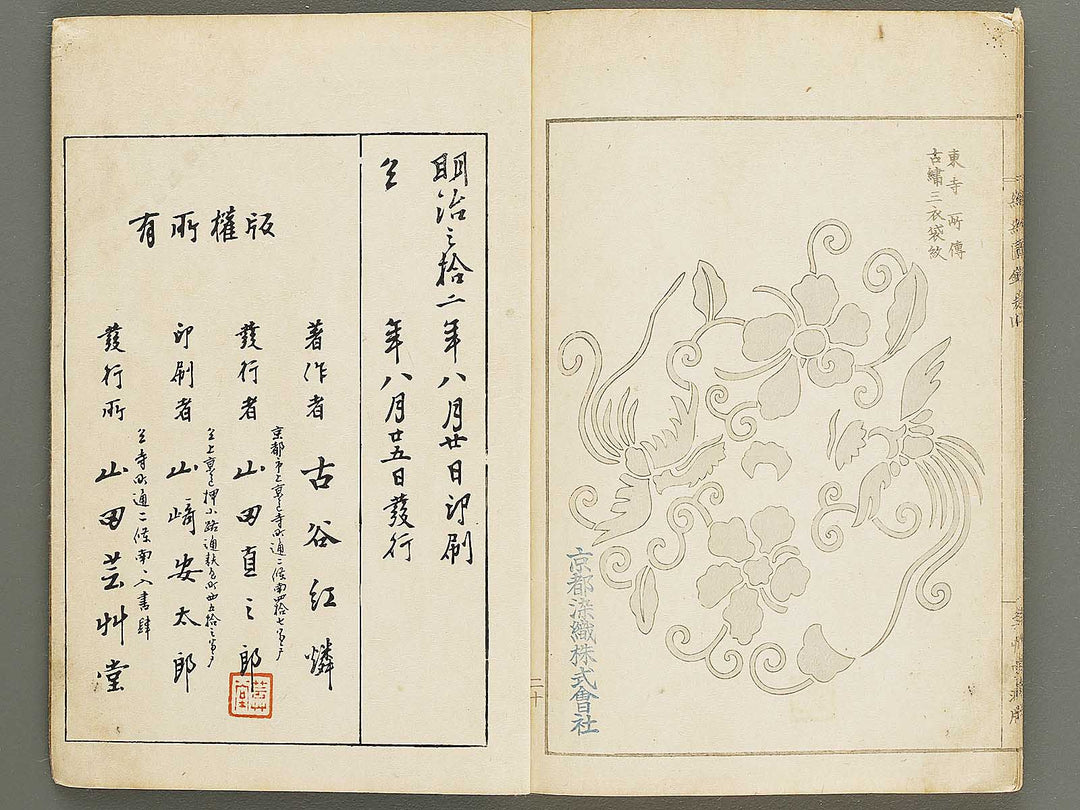 東寺所傳
古繡三衣袋紋
京都染織株式會社
二十
明治三拾二年八月廿日印刷
仝年八月廿五日發行
版權所有
著作者 古谷紅燐
京都市上京区寺町通二條南四拾七番戸
發行者 山田直三郎
仝上京区押小路通麩屋町西五拾三番戸
印刷者 山﨑安太郎
仝寺町通二條南入書肆
發行所 山田芸艸堂
芸艸堂